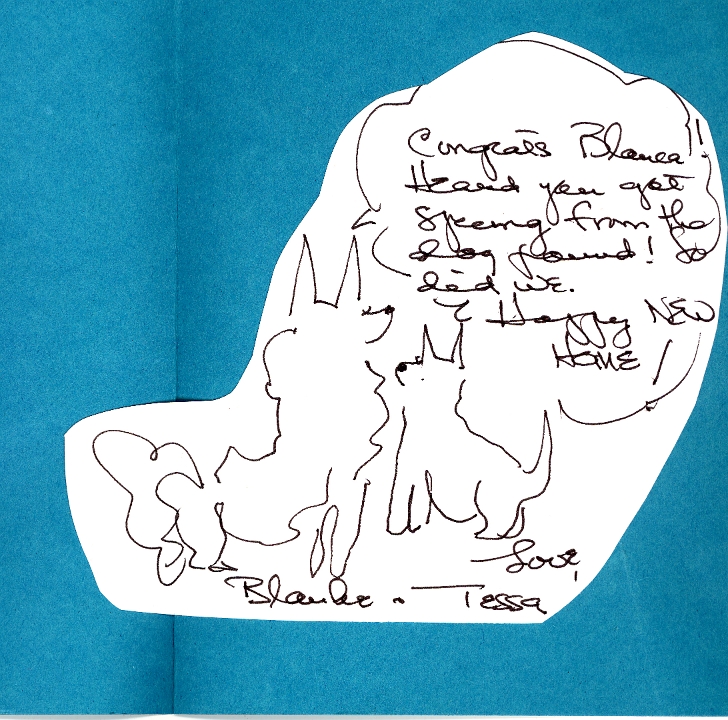 Congrats Blanca!!
Heard you got
sprung from the
dog pound! So
did we.
& Happy NEW
HOME!
Love,
Blanke & Tessa